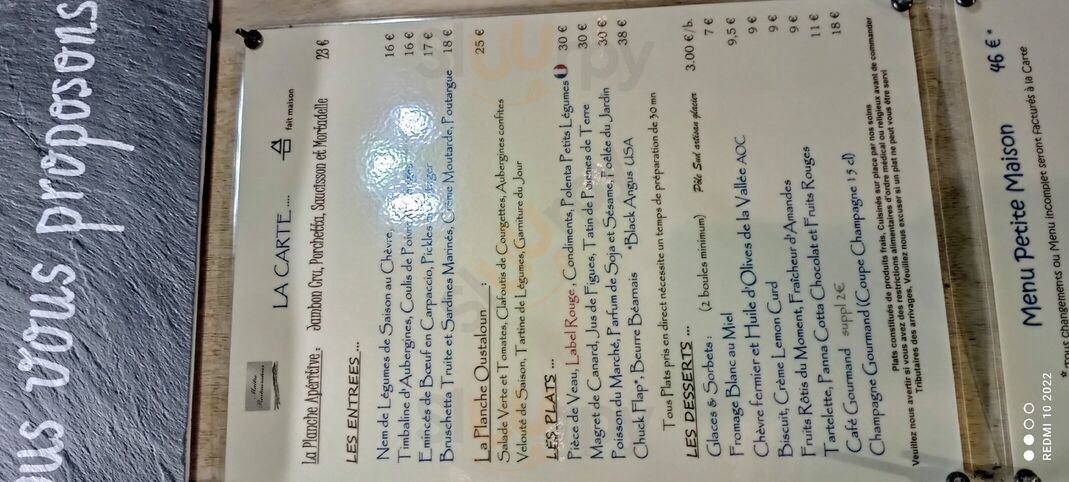 ous vous proposons
Maître Restaurateur
LA CARTE .... fait maison
La Planche Apéritive : Jambon Cru, Porchetta, Saucisson et Mortadelle 23 €
LES ENTREES ...
Nem de Légumes de Saison au Chèvre, 16 €
Timbaline d'Aubergines, Coulis de 16 €
Emincés de Bœuf en Carpaccio, Pickles 17 €
Bruschetta Truite et Sardines Marinés, Crème Moutarde, Poutargue 18 €
La Planche Oustaloun : 25 €
Salade Verte et Tomates, Clafoutis de Courgettes, Aubergines confites
Velouté de Saison, Tartine de Légumes, Garniture du Jour
LES PLATS ...
Pièce de Veau, Label Rouge, Condiments, Polenta Petits Légumes 30 €
Magret de Canard, Jus de Figues, Tatin de Pommes de Terre 30 €
Poisson du Marché, Parfum de Soja et Sésame, Poêlée du Jardin 30 €
Chuck Flap*, Beurre Béarnais *Black Angus USA 38 €
Tous Plats pris en direct nécessite un temps de préparation de 30 mn
LES DESSERTS ...
Glaces & Sorbets : (2 boules minimum) Pôle Sud artisan glacier 3.00 €/b.
Fromage Blanc au Miel 7 €
Chèvre fermier et Huile d'Olives de la Vallée AOC 9,5 €
Biscuit, Crème Lemon Curd 9 €
Fruits Rôtis du Moment, Fraîcheur d'Amandes 9 €
Tartelette, Panna Cotta Chocolat et Fruits Rouges 9 €
Café Gourmand suppl 2€ 11 €
Champagne Gourmand (Coupe Champagne 15 cl) 18 €
Plats constitués de produits frais, Cuisinés sur place par nos soins
Veuillez nous avertir si vous avez des restrictions alimentaires d'ordre médical ou religieux avant de commander
Tributaires des arrivages, Veuillez nous excuser si un plat ne peut vous être servi
Menu Petite Maison 46 €*
* Tous changements ou Menu incomplet seront facturés à la Carte
REDMI 10 2022